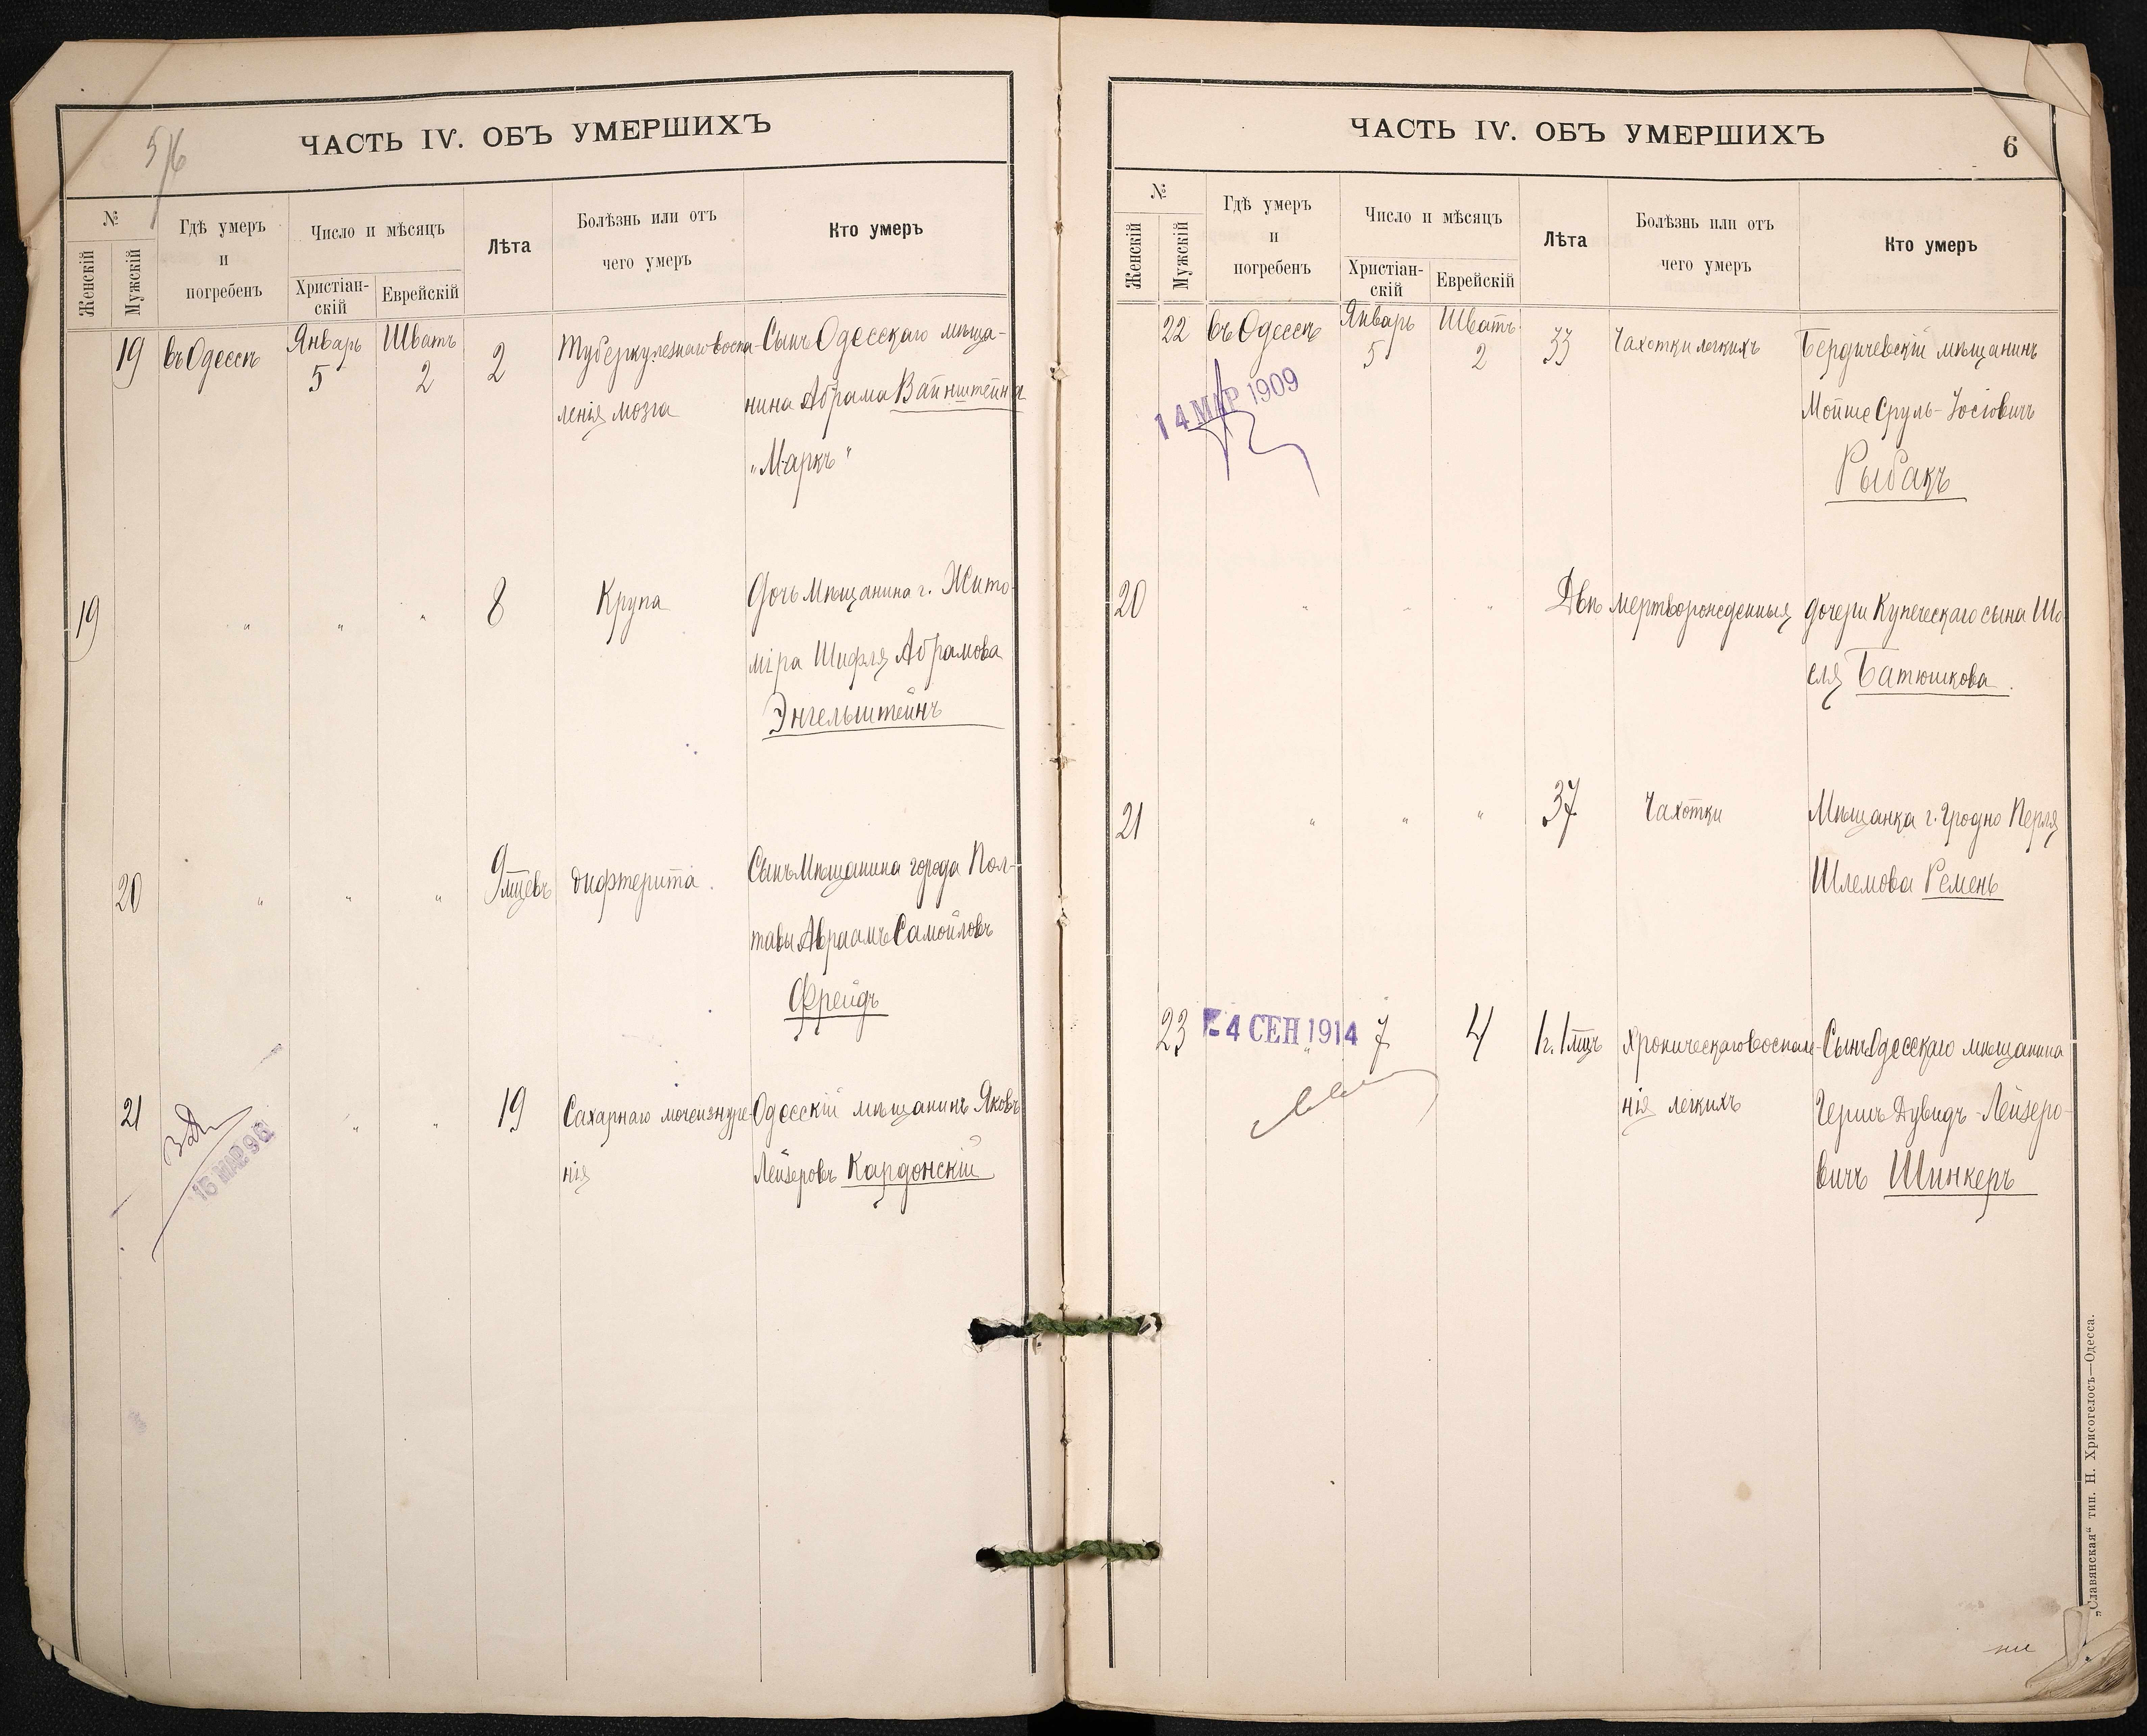 5/6
ЧАСТЬ IV. ОБЪ УМЕРШИХЪ
№
Женскій
Мужскій
Гдѣ умеръ
и
погребенъ
Число и мѣсяцъ
Христіан-
скій
Еврейскій
Лѣта
Болѣзнь или отъ
чего умеръ
Кто умеръ
19 въ Одессѣ Январь Шватъ 2 Туберкулезнаго воспа- Сынъ Одесскаго мѣща-
5 2 ленія мозга нина Абрама Вайнштейна
„Маркъ"
19 " " " 8 Крупа Дочь Мѣщанина г. Жито-
міра Шифля Абрамова
Энгельштейнъ
20 " " " 9 мцевъ дифтерита. Сынъ Мѣщанина города Пол-
тавы Авраамъ Самойловъ
Фрейдъ
21 " " 19 Сахарнаго мочеизнуре- Одесскій мѣщанинъ Яковъ
нія Лейзеровъ Кардонскій
15 МАР 96
ЧАСТЬ IV. ОБЪ УМЕРШИХЪ
6
№
Женскій
Мужскій
Гдѣ умеръ
и
погребенъ
Число и мѣсяцъ
Христіан-
скій
Еврейскій
Лѣта
Болѣзнь или отъ
чего умеръ
Кто умеръ
22 въ Одессѣ Январь Шватъ 33 Чахотки легкихъ Бердичевскій мѣщанинъ
5 2 Мойше Сруль-Іосіовичъ
14 МАР 1909
Рыбакъ
20 " " " Двѣ мертворожденныя дочери Купеческаго сына Іо-
селя Батюшкова.
21 " " " 37 Чахотки Мѣщанка г. Гродно Перля
Шлемова Ремень
23 - 4 СЕН 1914 " 7 4 1 г. 1 мцъ Хроническаго воспале- Сынъ Одесскаго мѣщанина
нія легкихъ Гершъ Дувидъ-Лейзеро-
вичъ Шинкеръ
„Славянская“ тип. Н. Хрисогелосъ—Одесса.